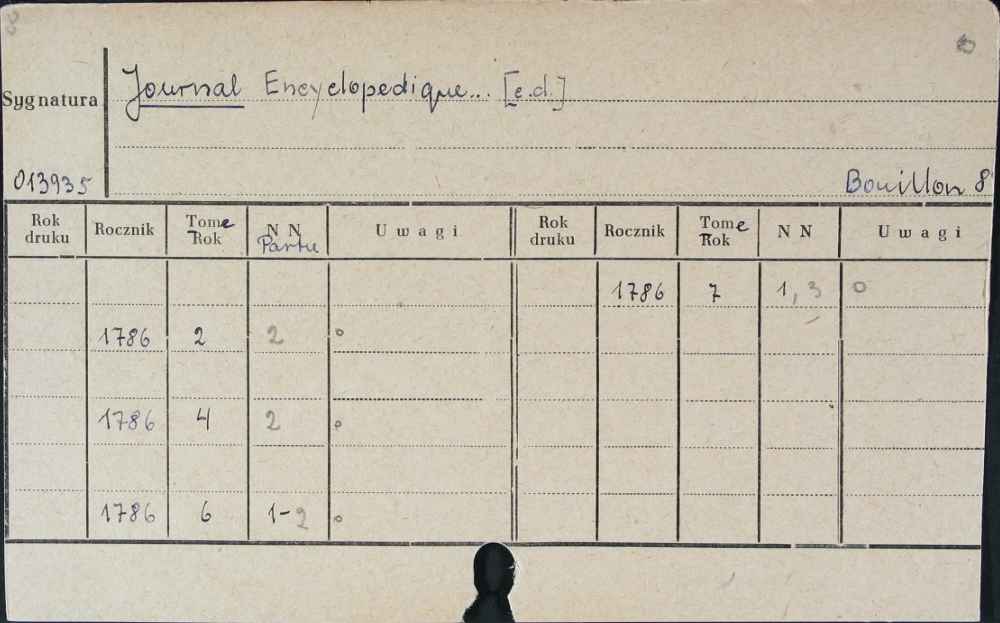 Sygnatura
Journal Encyclopedique... [e.d.]
013935
Bouillon 8°
Rok druku Rocznik Tome Rok N N Partie Uwagi Rok druku Rocznik Tome Rok N N Uwagi
1786 7 1, 3 o
1786 2 2 o
1786 4 2 o
1786 6 1-2 o